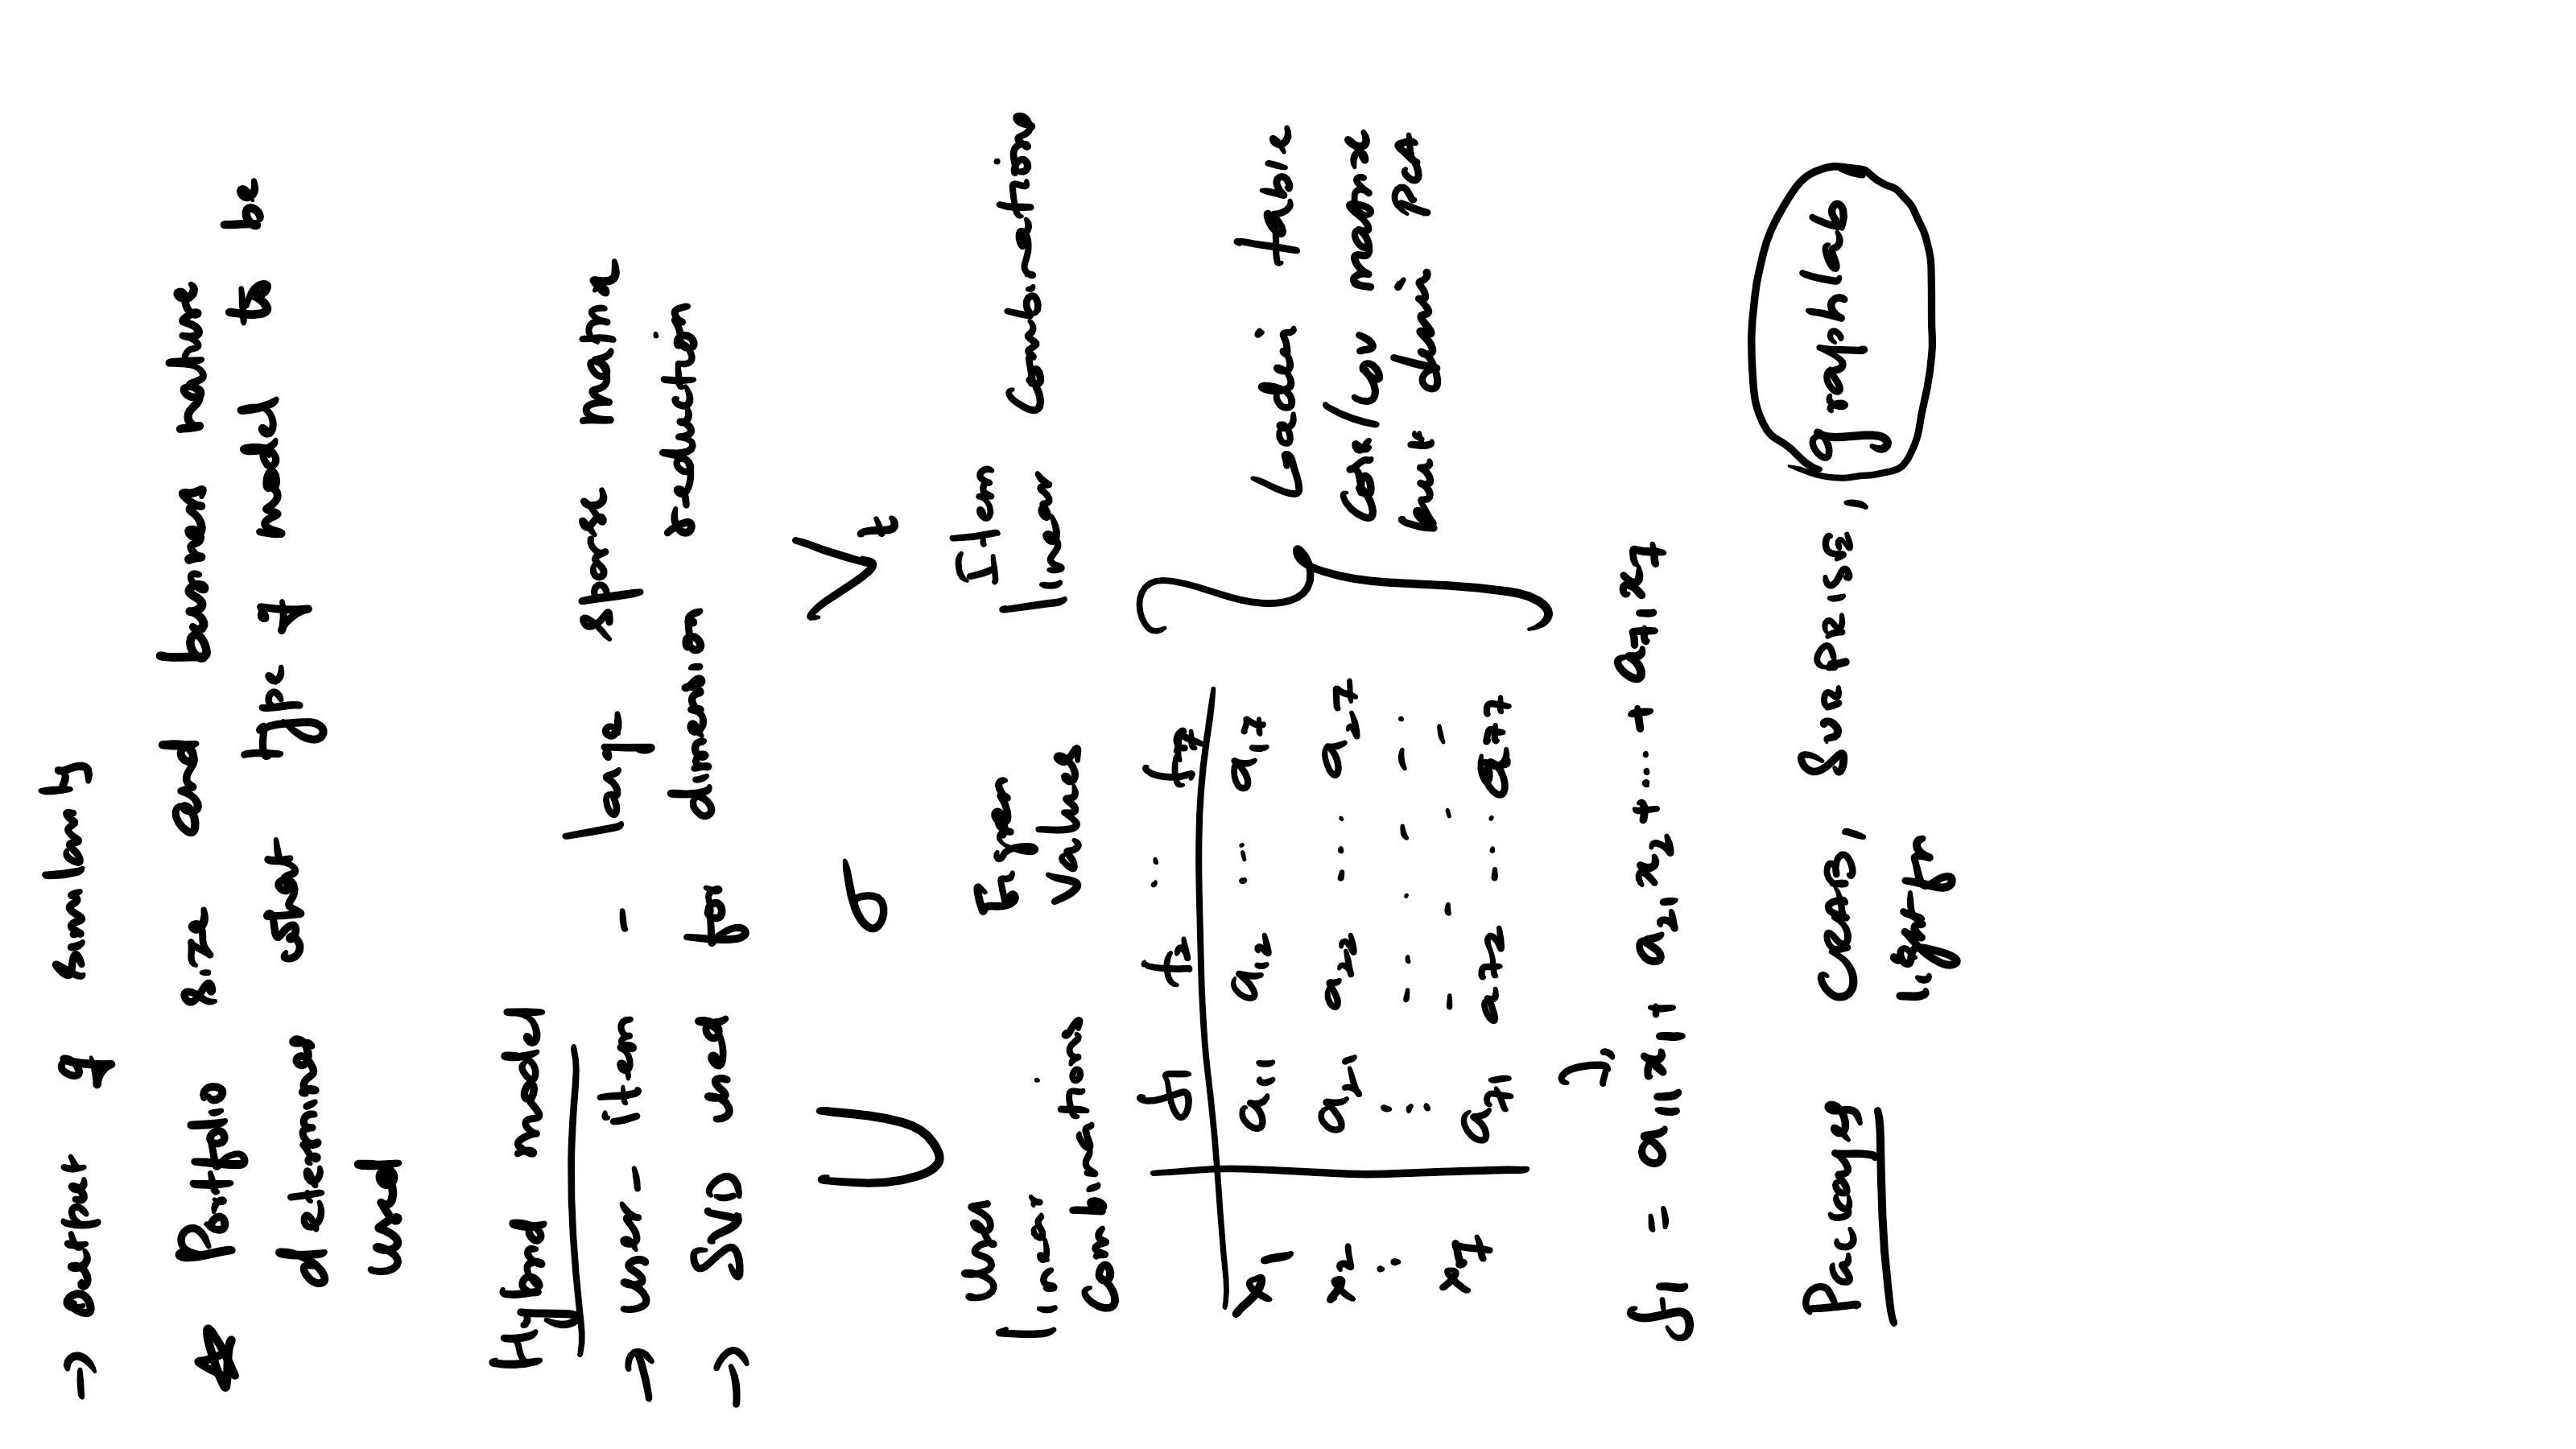 → Output of similarity
* Portfolio size and business nature
determines what type of model to be
used
Hybrid model
→ user-item - large sparse matrix
→ SVD used for dimension reduction
U σ Vt
User Eigen Item
linear Values linear Combinations
Combinations
f1 f2 .. f7
x1 a11 a12 ... a17
x2 a21 a22 ... a27
x7 a71 a72 ... a77
Loading table
Corr/Cov matrix
but during PCA
f1 = a11x1 + a21x2 + .... + a71x7
Packages CRAB, SURPRISE, graphlab
lightfm